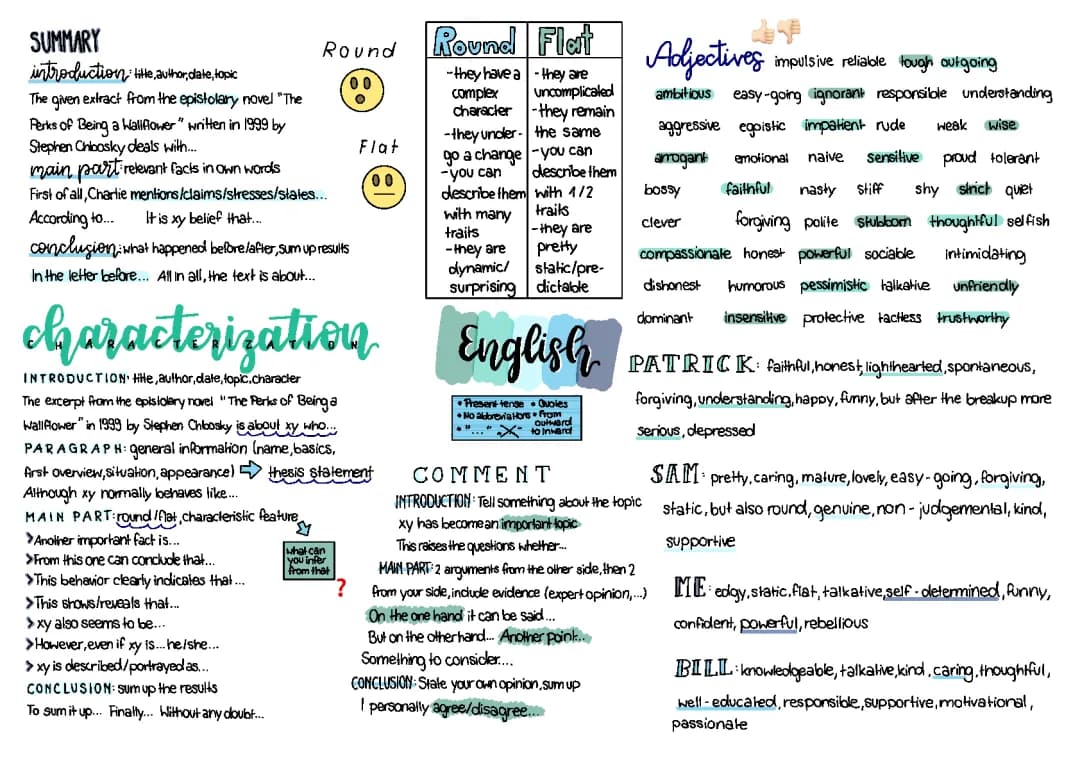 SUMMARY
introduction: title,author,date,topic
The given extract from the epistolary novel "The
Perks of Being a Wallflower" written in 1999 by
Stephen Chbosky deals with...
main part: relevant facts in own words
First of all,Charlie mentions/claims/stresses/states...
According to... It is xy belief that...
conclusion: what happened before/after,sum up results
In the letter before... All in all, the text is about...
Round
Flat
Round
-they have a
complex
character
-they under-
go a change
-you can
describe them
with many
traits
-they are
dynamic/
surprising
Flat
-they are
uncomplicated
-they remain
the same
-you can
describe them
with 1/2
traits
-they are
pretty
static/pre-
dictable
Adjectives impulsive reliable tough outgoing
ambitious easy-going ignorant responsible understanding
aggressive egoistic impatient rude weak wise
arrogant emotional naive sensitive proud tolerant
bossy faithful nasty stiff shy strict quiet
clever forgiving polite stubborn thoughtful selfish
compassionate honest powerful sociable intimidating
dishonest humorous pessimistic talkative unfriendly
dominant insensitive protective tactless trustworthy
characterization
CHARACTERIZATION
INTRODUCTION: title,author,date,topic,character
The excerpt from the epistolary novel "The Perks of Being a
Wallflower" in 1999 by Stephen Chbosky is about xy who...
PARAGRAPH: general information (name,basics,
first overview,situation,appearance) thesis statement
Although xy normally behaves like...
MAIN PART: round/flat,characteristic feature
>Another important fact is...
>From this one can conclude that...
>This behavior clearly indicates that...
>This shows/reveals that...
>xy also seems to be...
>However,even if xy is...he/she...
>xy is described/portrayed as...
what can
you infer
from that
?
CONCLUSION: sum up the results
To sum it up... Finally... Without any doubt...
English
• Present tense • Quotes
• No abbreviations • From
outward
• "..." to inward
COMMENT
INTRODUCTION: Tell something about the topic
xy has become an important topic
This raises the questions whether...
MAIN PART: 2 arguments from the other side,then 2
from your side,include evidence (expert opinion,...)
On the one hand it can be said...
But on the other hand... Another point...
Something to consider....
CONCLUSION: State your own opinion,sum up
I personally agree/disagree...
PATRICK: faithful,honest,lighthearted,spontaneous,
forgiving,understanding,happy,funny,but after the breakup more
serious,depressed
SAM: pretty,caring,mature,lovely,easy-going,forgiving,
static,but also round,genuine,non-judgemental,kind,
supportive
ME: edgy,static,flat,talkative,self-determined,funny,
confident,powerful,rebellious
BILL: knowledgeable,talkative,kind,caring,thoughtful,
well-educated,responsible,supportive,motivational,
passionate